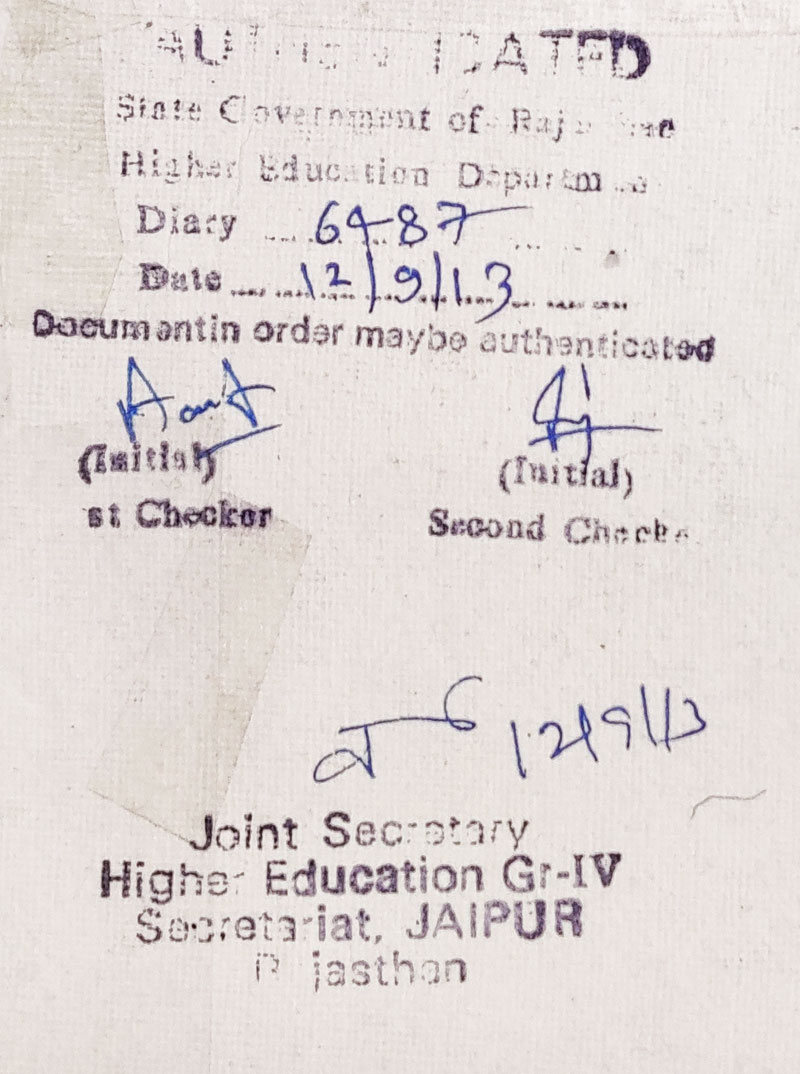 AUTHENTICATED
State Government of Rajasthan
Higher Education Department
Diary 6487
Date 12/9/13
Document in order maybe authenticated
(Initial) (Initial)
st Checker Second Checke
12/9/13
Joint Secretary
Higher Education Gr-IV
Secretariat, JAIPUR
Rajasthan